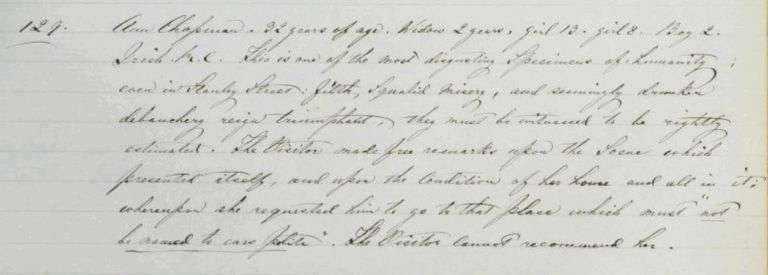 129. Ann Chapman. 32 years of age. Widow 2 years, girl 13. girl 8. Boy 2.
Irish R.C. This is one of the most disgusting Specimens of humanity;
even in Stanley Street: filth, Squalid Misery, and seemingly drunken
debauchery reign triumphant, they must be witnessed to be rightly
estimated. The Visitor made free remarks upon the Scene which
presented itself, and upon the Condition of her house and all in it;
whereupon she requested him to go to that place which must "not
be named to ears polite". The Visitor cannot recommend her.